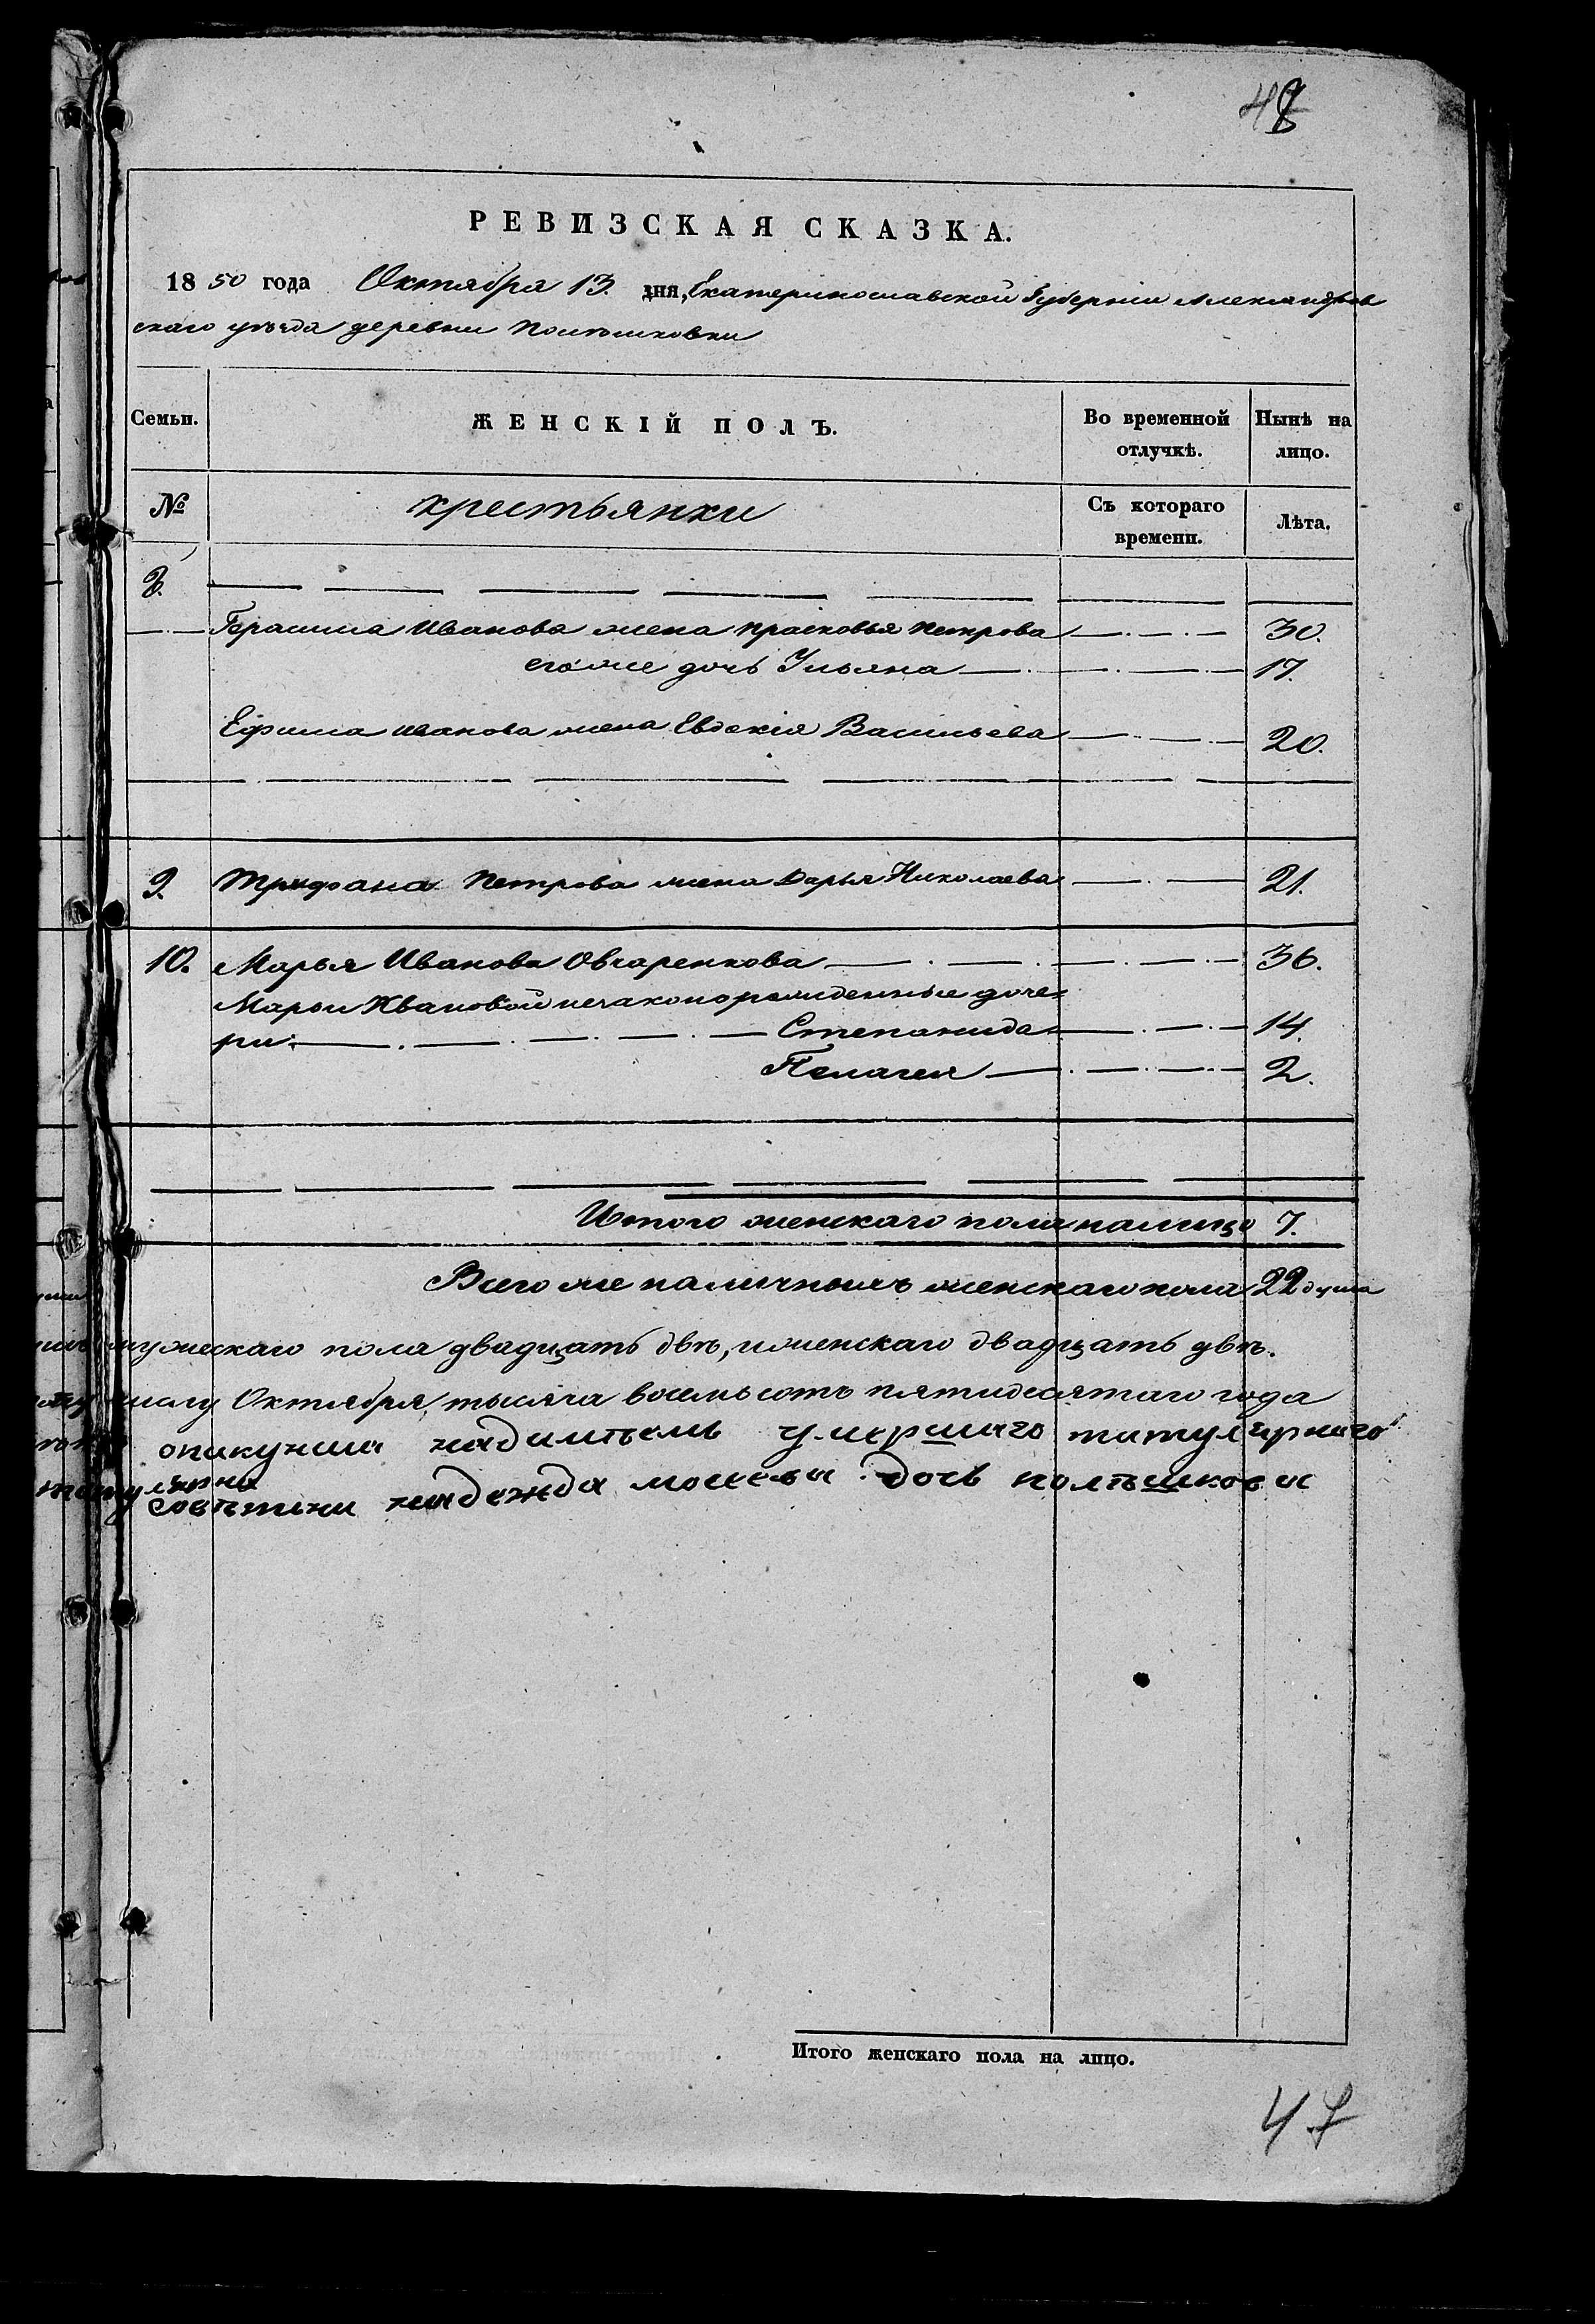 48
РЕВИЗСКАЯ СКАЗКА.
1850 года Октября 13. дня, Екатеринославской Губерніи Александров
скаго уѣзда деревни Полтьшковки
Семьи. ЖЕНСКІЙ ПОЛЪ. Во временной отлучкѣ. Нынѣ на лицо.
№ крестьянки Съ котораго времени. Лѣта.
8.
Герасима Иванова жена Прасковья Петрова 30.
его же дочь Ульяна 17.
Ефима Иванова жена Евдокія Васильева 20.
9. Трифона Петрова жена Дарья Николаева 21.
10. Марья Иванова Овчаренкова 36.
Марьи Ивановой незаконорожденные доче-
ри: Степанида 14.
Пелагея 2.
Итого женскаго пола налицо 7.
Всего же наличныхъ женскаго пола 22 душа
мужескаго пола двадцать двѣ, и женскаго двадцать двѣ.
числу Октября, тысяча восемь сотъ пятидесятаго года
опикунша надимѣемъ умершаго титулярнаго
совѣтни надежда дочь полѣшкова
Итого женскаго пола на лицо.
47